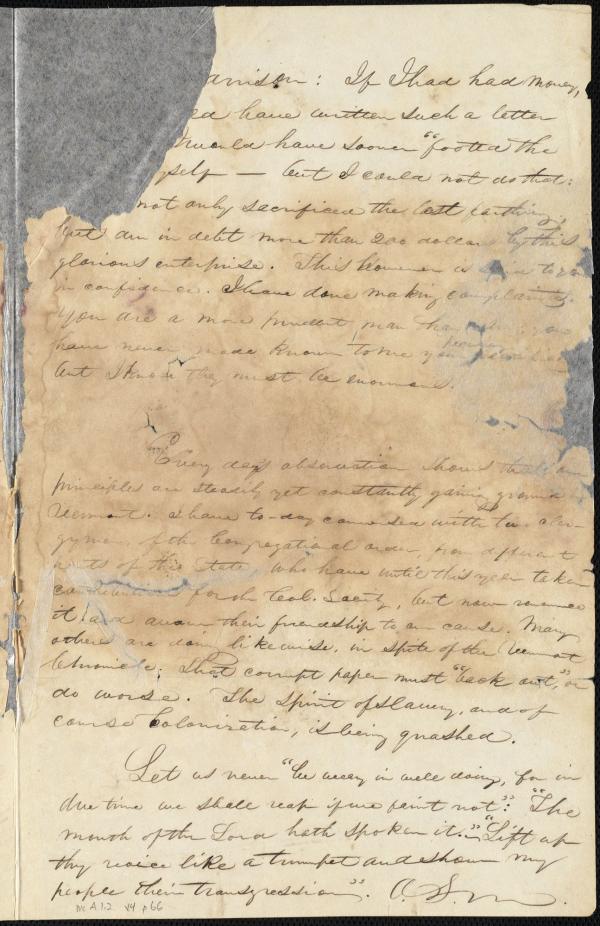 arrison: If I had had money,
ld have written such a letter
should have sooner "footed the
yself — but I could not do that:
not only sacrificed the last farthing,
but am in debt more than 200 dollars by this
glorious enterprise. This however is
in confidence. I have done making complaints.
You are a more prudent man than
have never made known to me your
but I know they must be enormous.
Every day's observation shows that our
principles are steadily yet constantly gaining ground
Vermont. I have to-day conversed with two cler-
gymen of the Congregational order, from different
parts of this State, who have until this year taken
contributions for the Col. Society, but now renounce
it and avow their friendship to our cause. Many
others are doing likewise, in spite of the Vermont
Chronicle. That corrupt paper must "back out," or
do worse. The spirit of slavery, and of
course Colonization, is being quashed.
Let us never "be weary in well doing, for in
due time we shall reap if we faint not": "The
mouth of the Lord hath spoken it." "Lift up
thy voice like a trumpet and show my
people their transgression". O. S. M.
Ms A.1.2 v4 p66